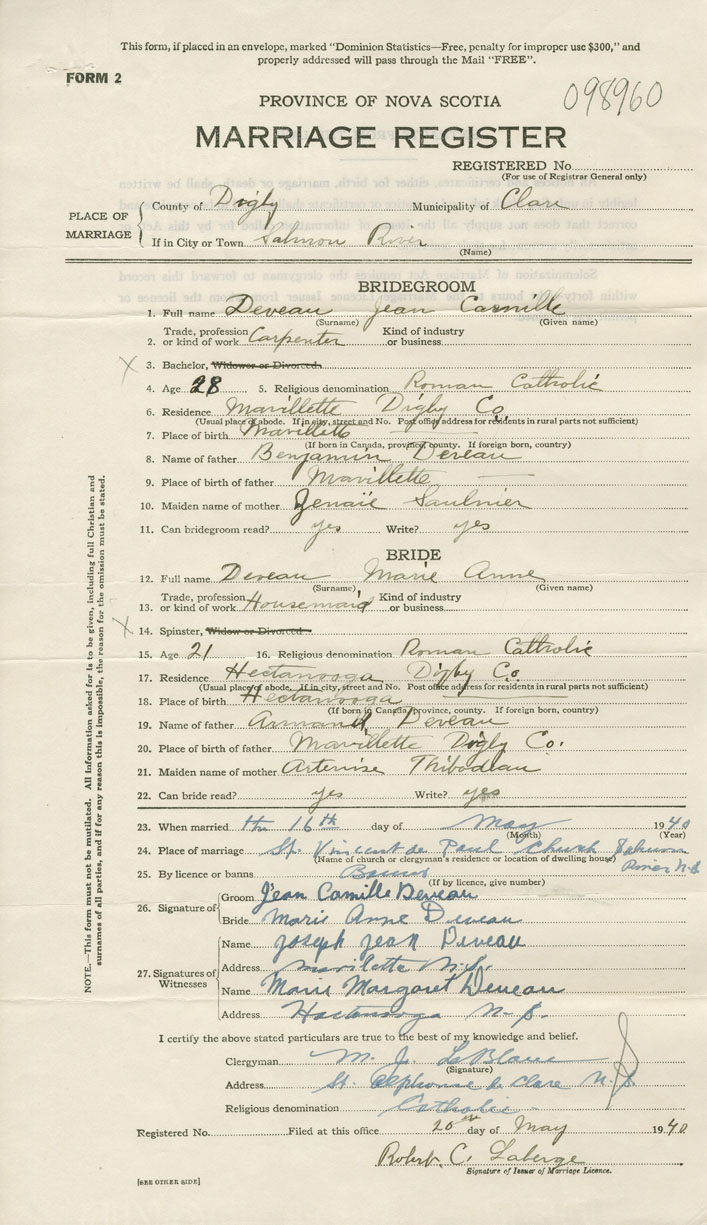 This form, if placed in an envelope, marked "Dominion Statistics—Free, penalty for improper use $300," and
properly addressed will pass through the Mail "FREE".
FORM 2
098960
PROVINCE OF NOVA SCOTIA
MARRIAGE REGISTER
REGISTERED No.
(For use of Registrar General only)
PLACE OF MARRIAGE
County of Digby Municipality of Clare
If in City or Town Salmon River
(Name)
BRIDEGROOM
1. Full name Deveau Jean Camille
(Surname) (Given name)
2. Trade, profession or kind of work Carpenter Kind of industry or business
X 3. Bachelor, Widower or Divorced
4. Age 28 5. Religious denomination Roman Catholic
6. Residence Mavillette Digby Co.
(Usual place of abode. If in city, street and No. Post office address for residents in rural parts not sufficient)
7. Place of birth Mavillette
(If born in Canada, province, county. If foreign born, country)
8. Name of father Benjamin Deveau
9. Place of birth of father Mavillette
10. Maiden name of mother Saulnier
11. Can bridegroom read? yes Write? yes
BRIDE
12. Full name Deveau Marie Anne
(Surname) (Given name)
13. Trade, profession or kind of work Housemaid Kind of industry or business
X 14. Spinster, Widow or Divorced
15. Age 21 16. Religious denomination Roman Catholic
17. Residence Hectanooga Digby Co.
(Usual place of abode. If in city, street and No. Post office address for residents in rural parts not sufficient)
18. Place of birth Hectanooga
(If born in Canada, province, county. If foreign born, country)
19. Name of father Armand Deveau
20. Place of birth of father Mavillette Digby Co.
21. Maiden name of mother Artemise Thibodeau
22. Can bride read? yes Write? yes
23. When married the 16th day of May 1940
(Month) (Year)
24. Place of marriage St. Vincent de Paul Church Salmon River N.S.
(Name of church or clergyman's residence or location of dwelling house)
25. By licence or banns Banns
(If by licence, give number)
26. Signature of
Groom Jean Camille Deveau
Bride Marie Anne Deveau
27. Signatures of Witnesses
Name Joseph Jean Deveau
Address Mavilette N.S.
Name Marie Margaret Deveau
Address Hectanooga N.S.
I certify the above stated particulars are true to the best of my knowledge and belief.
Clergyman M. J. LeBlanc
(Signature)
Address St. Alphonse de Clare N.S
Religious denomination Catholic
Registered No. Filed at this office 20th day of May 1940
Robert C. Laberge
Signature of Issuer of Marriage Licence.
[SEE OTHER SIDE]
NOTE.—This form must not be mutilated. All information asked for is to be given, including full Christian and
surnames of all parties, and if for any reason this is impossible, the reason for the omission must be stated.